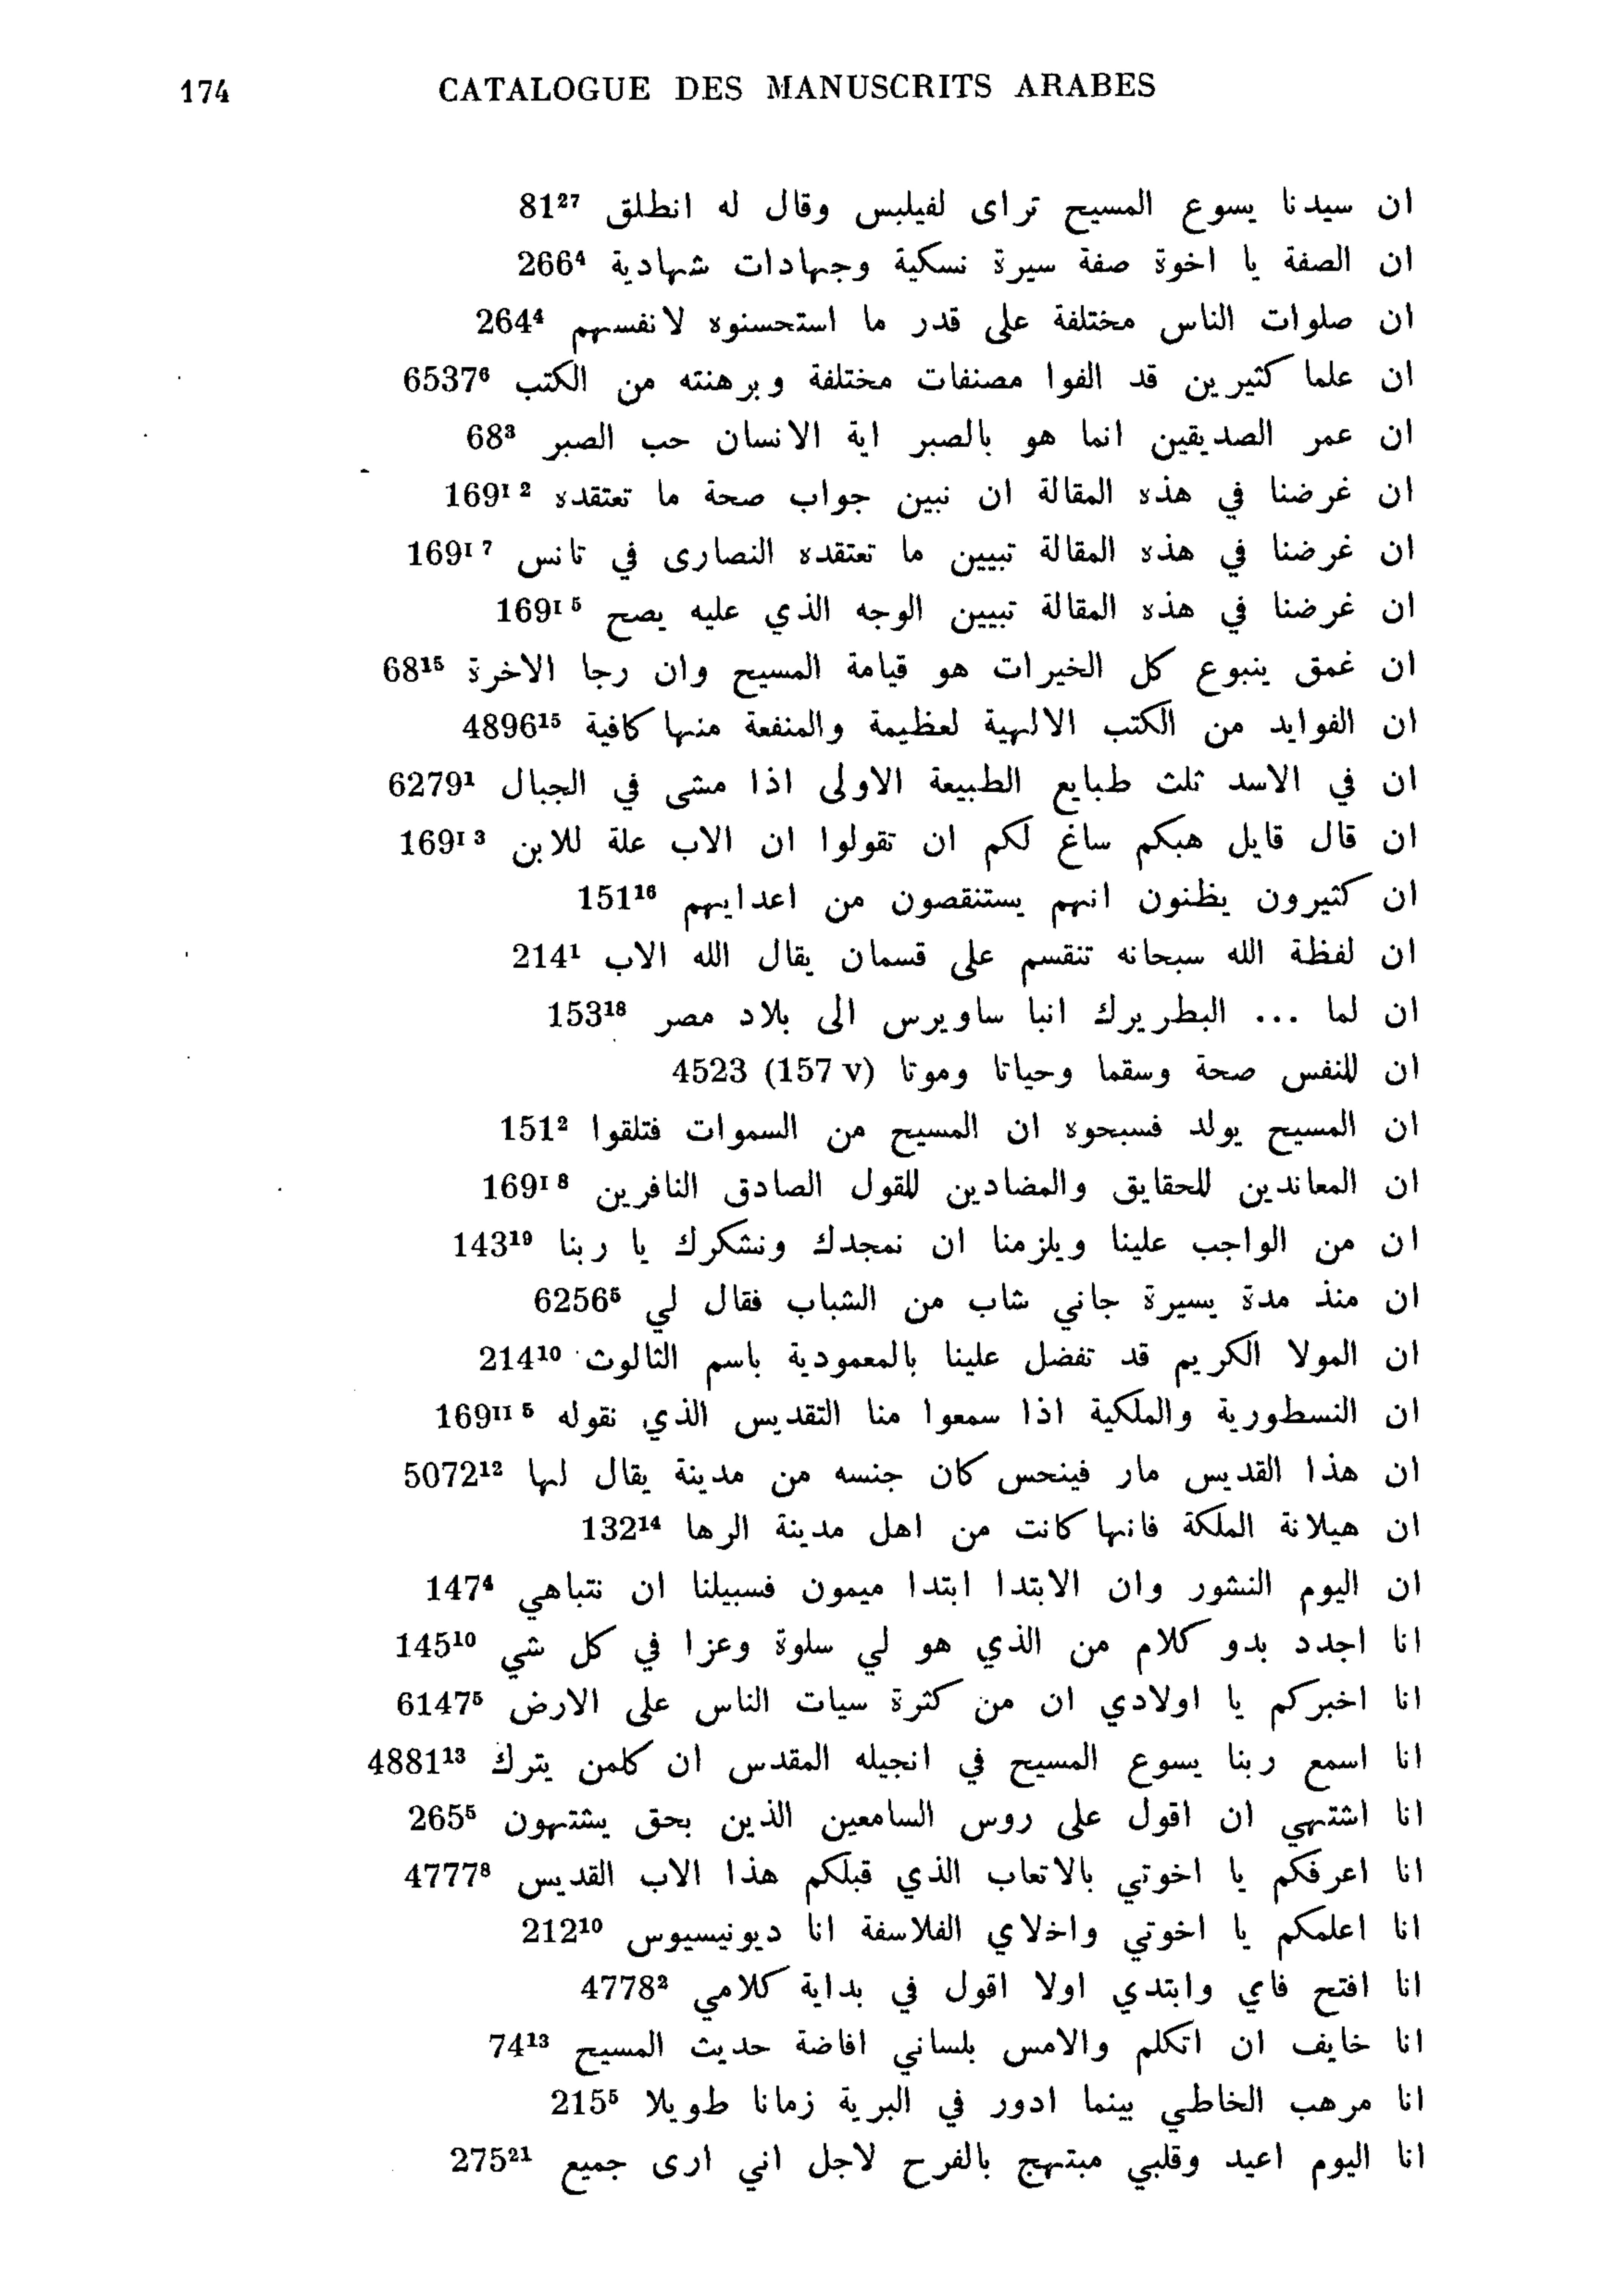 174 CATALOGUE DES MANUSCRITS ARABES
ان سيدنا يسوع المسيح تراى لفيلبس وقال له انطلق 81²⁷
ان الصفة يا اخوة صفة سيرة نسكية وجهادات شهادية 266⁴
ان صلوات الناس مختلفة على قدر ما استحسنوه لانفسهم 264⁴
ان علما كثيرين قد الفوا مصنفات مختلفة وبرهنته من الكتب 6537⁶
ان عمر الصديقين انما هو بالصبر اية الانسان حب الصبر 68³
ان غرضنا في هذه المقالة ان نبين جواب صحة ما تعتقده 169ᴵ ²
ان غرضنا في هذه المقالة تبيين ما تعتقده النصارى في تانس 169ᴵ ⁷
ان غرضنا في هذه المقالة تبيين الوجه الذي عليه يصح 169ᴵ ⁵
ان غمق ينبوع كل الخيرات هو قيامة المسيح وان رجا الاخرة 68¹⁵
ان الفوايد من الكتب الالهية لعظيمة والمنفعة منها كافية 4896¹⁵
ان في الاسد ثلث طبايع الطبيعة الاولى اذا مشى في الجبال 6279¹
ان قال قايل هبكم ساغ لكم ان تقولوا ان الاب علة للابن 169ᴵ ³
ان كثيرون يظنون انهم يستنقصون من اعدايهم 151¹⁶
ان لفظة الله سبحانه تنقسم على قسمان يقال الله الاب 214¹
ان لما ... البطريرك انبا ساويرس الى بلاد مصر 153¹⁸
ان للنفس صحة وسقما وحياتا وموتا (157 v) 4523
ان المسيح يولد فسبحوه ان المسيح من السموات فتلقوا 151²
ان المعاندين للحقايق والمضادين للقول الصادق النافرين 169ᴵ ⁸
ان من الواجب علينا ويلزمنا ان نمجدك ونشكرك يا ربنا 143¹⁹
ان منذ مدة يسيرة جاني شاب من الشباب فقال لي 6256⁵
ان المولا الكريم قد تفضل علينا بالمعمودية باسم الثالوث 214¹⁰
ان النسطورية والملكية اذا سمعوا منا التقديس الذي نقوله 169ᴵᴵ ⁵
ان هذا القديس مار فينحس كان جنسه من مدينة يقال لها 5072¹²
ان هيلانة الملكة فانها كانت من اهل مدينة الرها 132¹⁴
ان اليوم النشور وان الابتدا ابتدا ميمون فسبيلنا ان نتباهي 147⁴
انا اجدد بدو كلام من الذي هو لي سلوة وعزا في كل شي 145¹⁰
انا اخبركم يا اولادي ان من كثرة سيات الناس على الارض 6147⁵
انا اسمع ربنا يسوع المسيح في انجيله المقدس ان كلمن يترك 4881¹³
انا اشتهي ان اقول على روس السامعين الذين بحق يشتهون 265⁵
انا اعرفكم يا اخوتي بالاتعاب الذي قبلكم هذا الاب القديس 4777⁸
انا اعلمكم يا اخوتي واخلاي الفلاسفة انا ديونيسيوس 212¹⁰
انا افتح فاي وابتدي اولا اقول في بداية كلامي 4778²
انا خايف ان اتكلم والامس بلساني افاضة حديث المسيح 74¹³
انا مرهب الخاطي بينما ادور في البرية زمانا طويلا 215⁵
انا اليوم اعيد وقلبي مبتهج بالفرح لاجل اني ارى جميع 275²¹